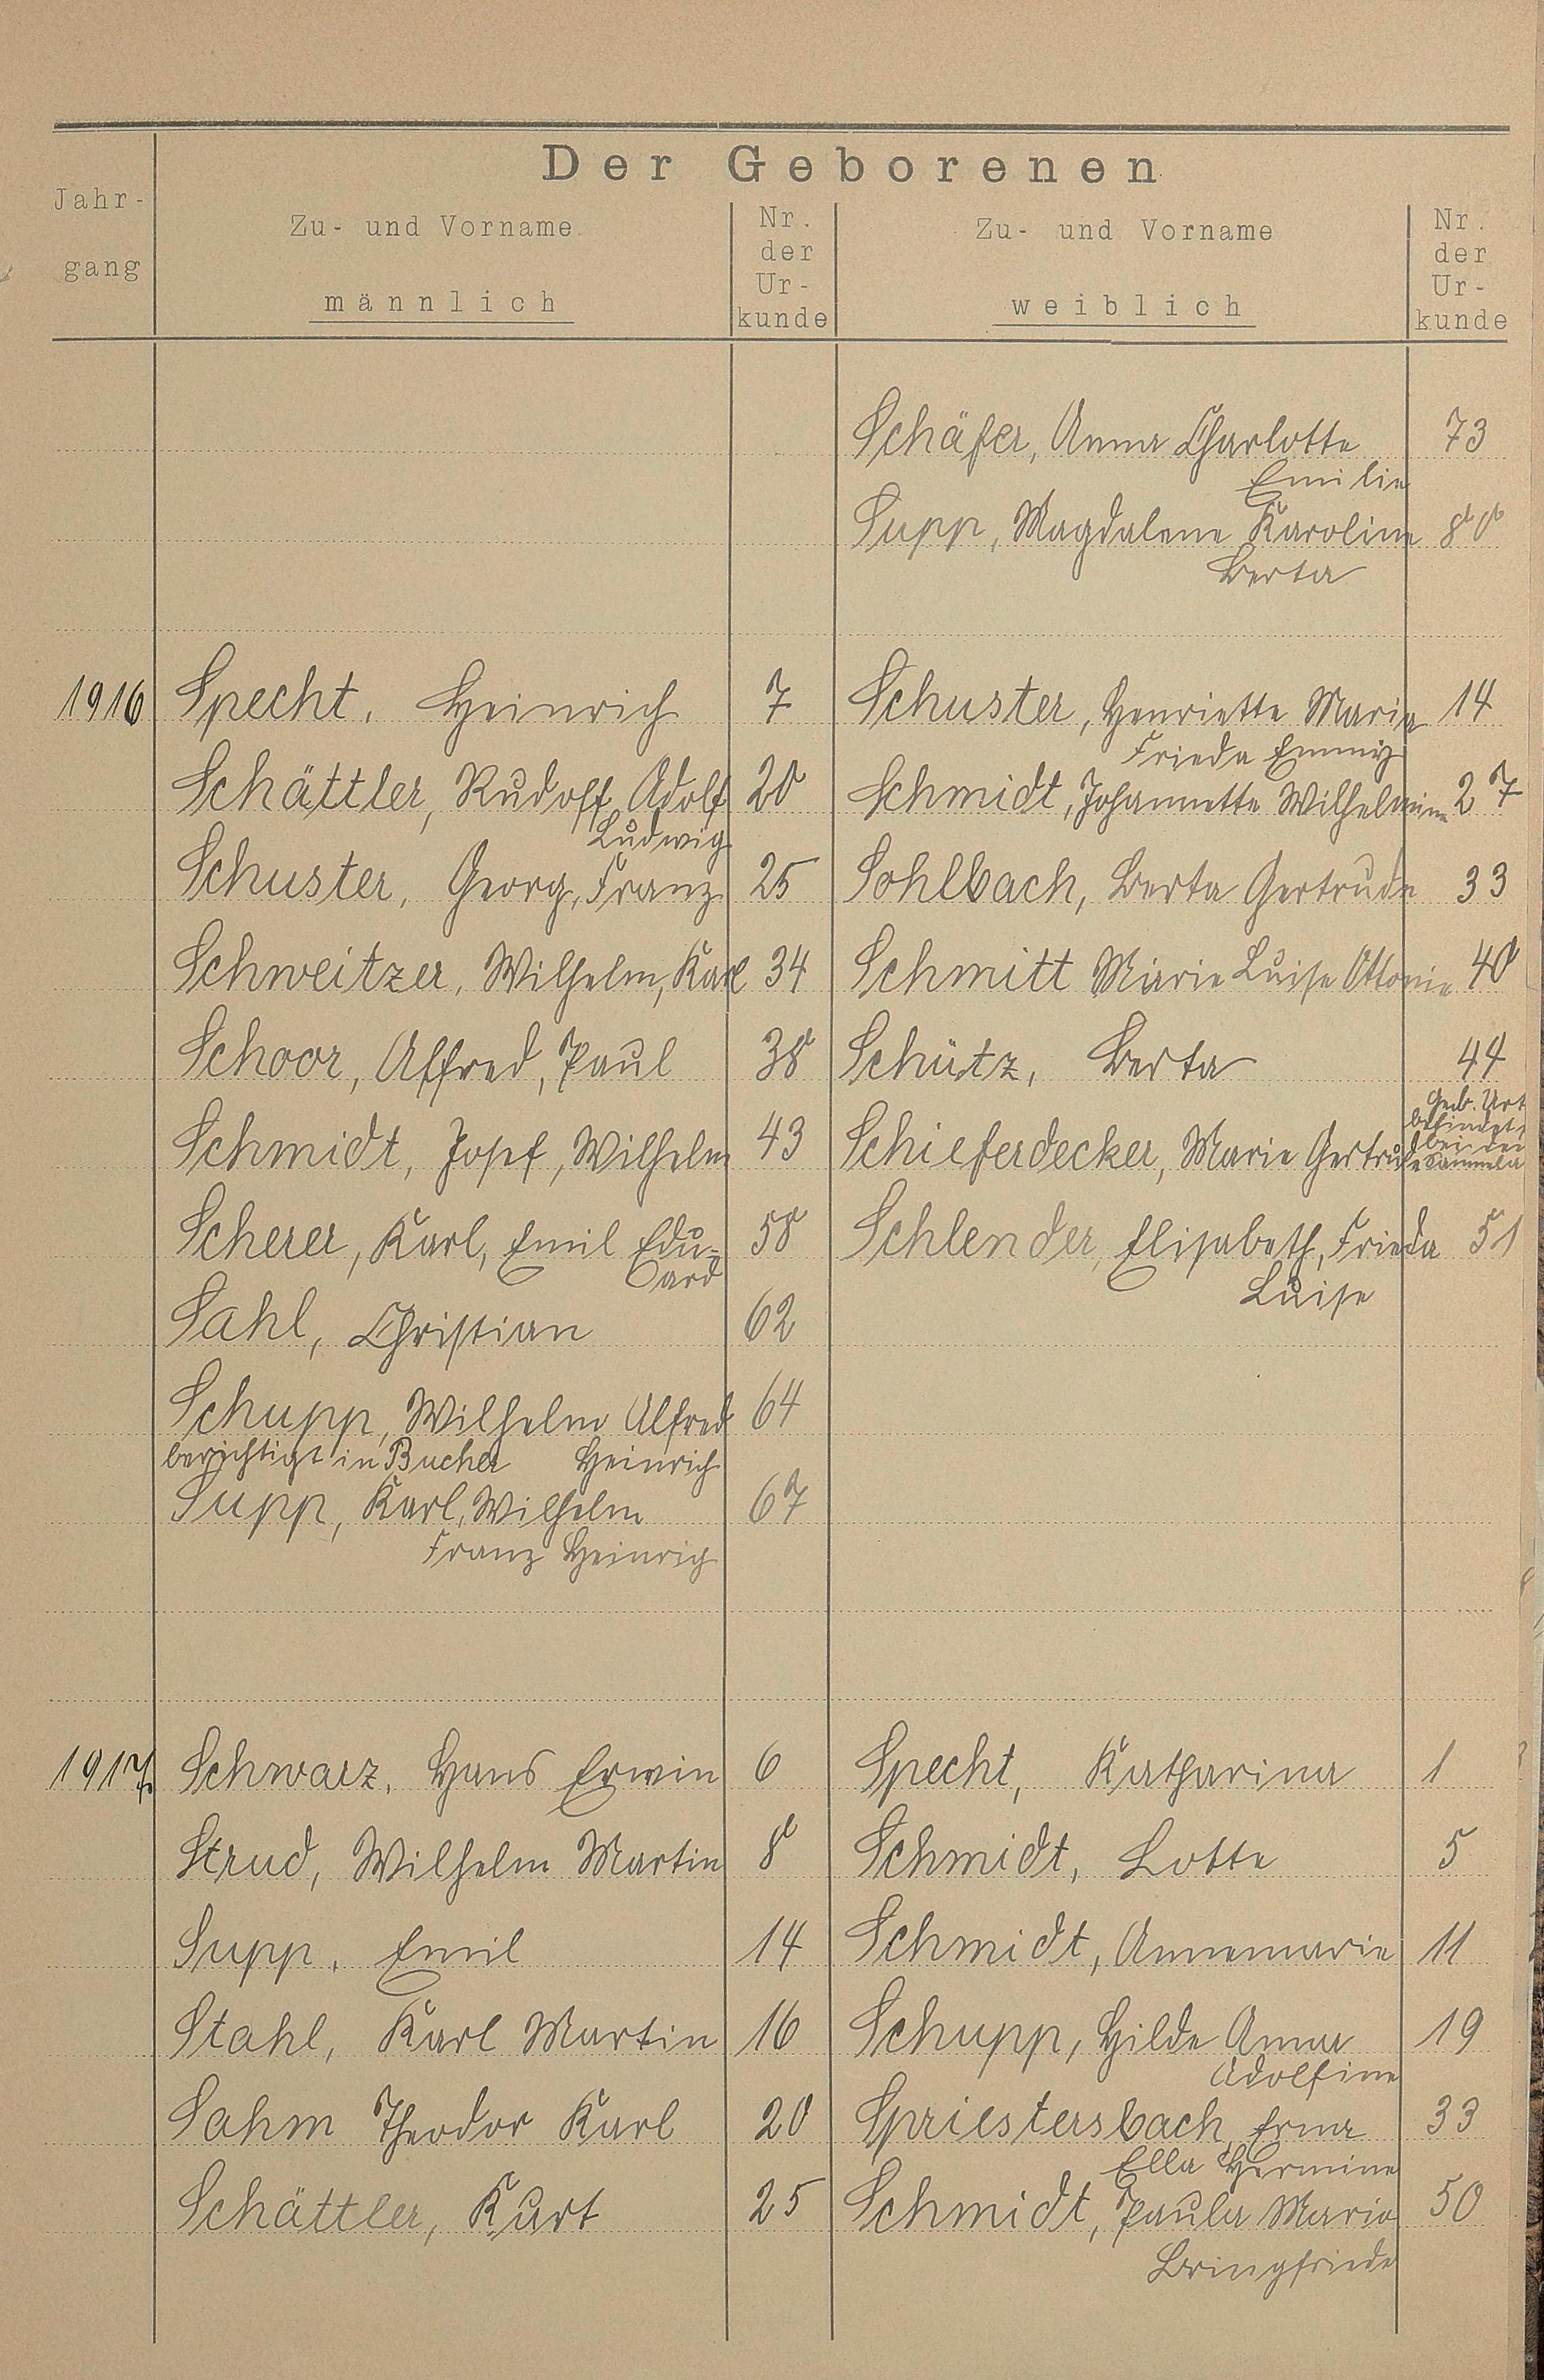 Der Geborenen
Jahr-
gang
Zu- und Vorname
männlich
Nr.
der
Ur-
kunde
Zu- und Vorname
weiblich
Nr.
der
Ur-
kunde
Schäfer, Anna Charlotte 73
Emilie
Supp, Magdalene Karoline 80
Berta
1916 Specht, Heinrich 7 Schuster, Henriette Marie 14
Frieda Emmy
Schättler, Rudolf, Adolf 20 Schmidt, Johannette Wilhelmine 27
Ludwig
Schuster, Georg, Franz 25 Sohlbach, Berta Gertrude 33
Schweitzer, Wilhelm, Karl 34 Schmitt Marie Luise Ottonie 40
Schoor, Alfred, Paul 38 Schütz, Berta 44
Geb. Urk
befindet
bei der
Schmidt, Josef, Wilhelm 43 Schieferdecker, Marie Gertrude
Scherer, Karl, Emil Edu- 58 Schlender, Elisabeth, Frieda 51
ard Luise
Sahl, Christian 62
Schupp, Wilhelm Alfred 64
berichtigt in Bucher Heinrich
Supp, Karl, Wilhelm 67
Franz Heinrich
1917 Schwarz, Hans Erwin 6 Specht, Katharina 1
Strud, Wilhelm Martin 8 Schmidt, Lotte 5
Supp, Emil 14 Schmidt, Annemarie 11
Stahl, Karl Martin 16 Schupp, Hilde Anna 19
Adolfine
Sahm Theodor Karl 20 Spriestersbach, Erna 33
Ella Hermine
Schättler, Kurt 25 Schmidt, Paula Maria 50
Bringfriede